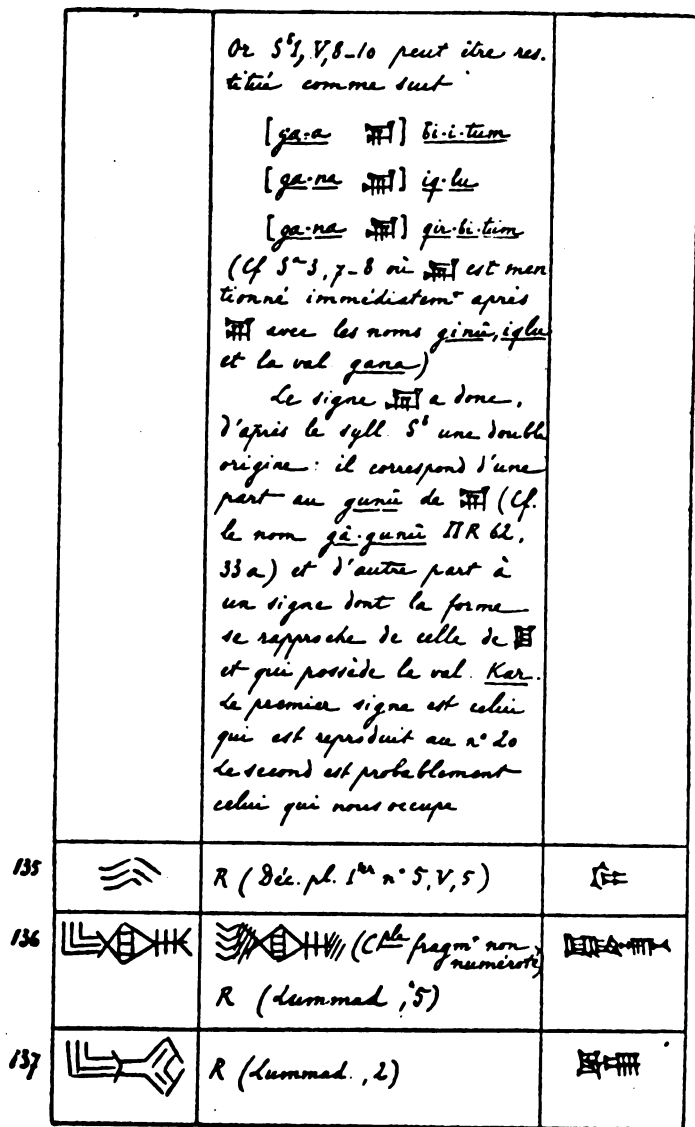 Or S^b I, V, 8-10 peut être res-
titué comme suit
[ga-a ] bi-i-tum
[ga-na ] iq-lu
[ga-na ] gir-bi-tum
(Cf S^a 3, 7-8 où est men
tionné immédiatem^t après
avec les noms ginû, iqlu
et la val gana)
Le signe a donc,
d'après le syll. S^b une double
origine: il correspond d'une
part au gunû de (Cf.
le nom gâ-gunû II R 62,
33 a) et d'autre part à
un signe dont la forme
se rapproche de celle de
et qui possède la val. Kar.
Le premier signe est celui
qui est reproduit au n° 20
Le second est probablement
celui qui nous occupe
135 R (Déc. pl. I^ter n° 5, V, 5)
136 (C^ple fragm^t non
numéroté)
R (Lummad, 5)
137 R (Lummad., 2)